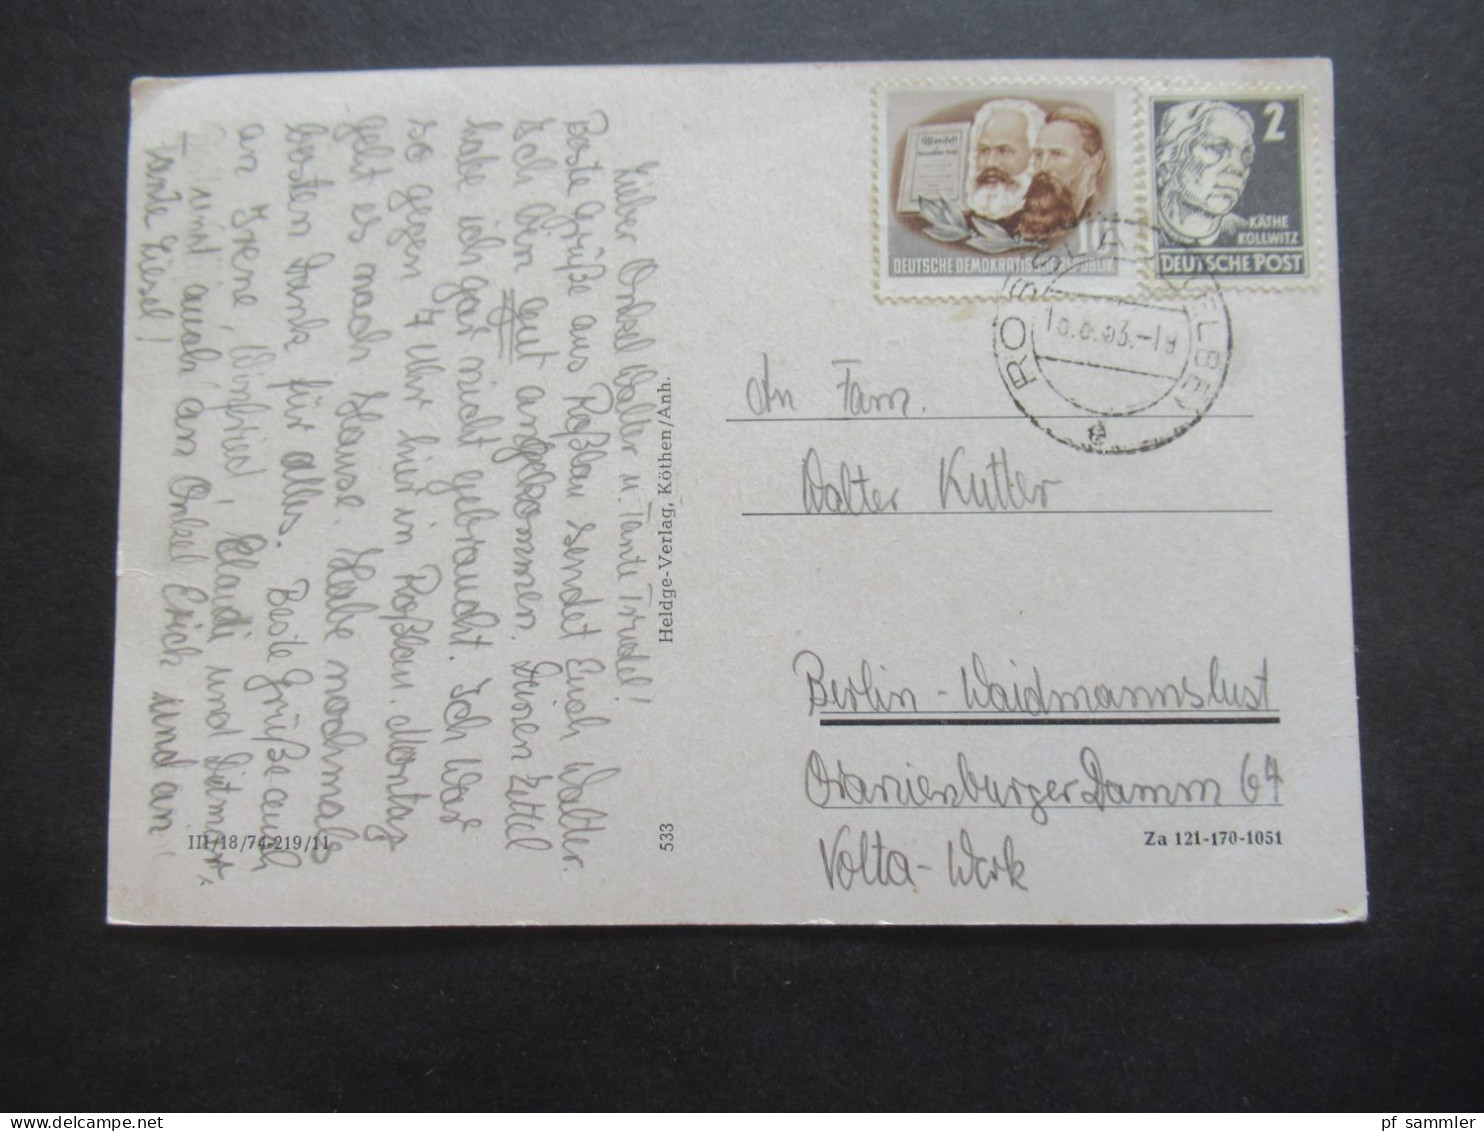 Lieber Onkel Walter u. Tante Trudel!
Beste Grüße aus Roßlau sendet Euch Walter.
Ich bin gut angekommen. Deinen Zettel
habe ich gar nicht gebraucht. Ich war
so gegen 7 Uhr hier in Roßlau. Montag
geht es nach Hause. Habe nochmals
besten Dank für alles. Beste Grüße auch
an Irene, Winfried, Klaudi und Ditmar,
und auch an Onkel Erich und an
Tante Liesel!
III/18/74-219/11
Heldge-Verlag, Köthen/Anh.
533
Manifest
10
DEUTSCHE DEMOKRATISCHE REPUBLIK
2
KÄTHE
KOLLWITZ
DEUTSCHE POST
ROSSLAU (ELBE)
e
An Fam.
Walter Kutter
Berlin - Waidmannslust
Oranienburger Damm 64
Volta-Werk
Za 121-170-1051
pf_sammler